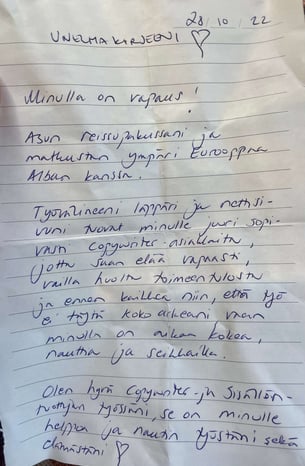 28 10 22
UNELMAKIRJEENI ♡
Minulla on vapaus!
Asun reissupakussani ja
matkustan ympäri Eurooppaa
Alban kanssa.
Työvälineeni läppäri ja nettisi-
vuni tuovat minulle juuri sopi-
vasti copywriter-asiakkaita,
jotta saan elää vapaasti,
vailla huolta toimeentulosta
ja ennen kaikkea niin, että työ
ei täytä koko arkeani vaan
minulla on aikaa kokea,
nauttia ja seikkailla.
Olen hyvä Copywriter- ja Sisällön-
tuottajan työssäni, se on minulle
helppoa ja nautin työstäni sekä
elämästäni ♡